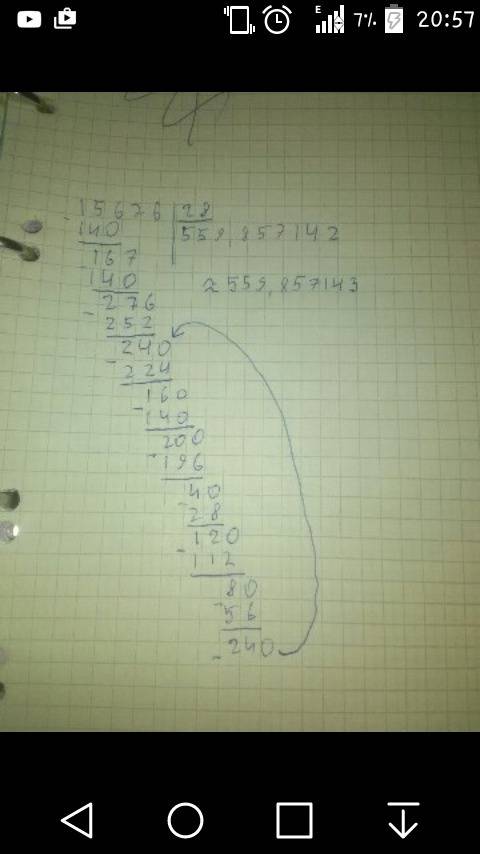 E 7% 20:57
15676 | 28
- 140 559,857142
167
- 140 ≈ 559,857143
276
- 252
240
- 224
160
- 140
200
- 196
40
- 28
120
- 112
80
- 56
- 240